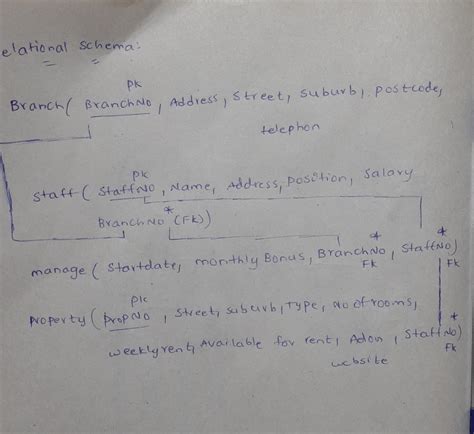 elational schema:
PK
Branch( BranchNo, Address, Street, suburb, postcode,
telephon
PK
Staff( StaffNo, Name, Address, position, salary
BranchNo* (FK))
manage ( Startdate, monthly Bonus, BranchNo*, StaffNo*)
FK FK
PK
property( propNo, street, suburb, Type, No of rooms,
weeklyrent, Available for rent, Adon, StaffNo*)
website FK